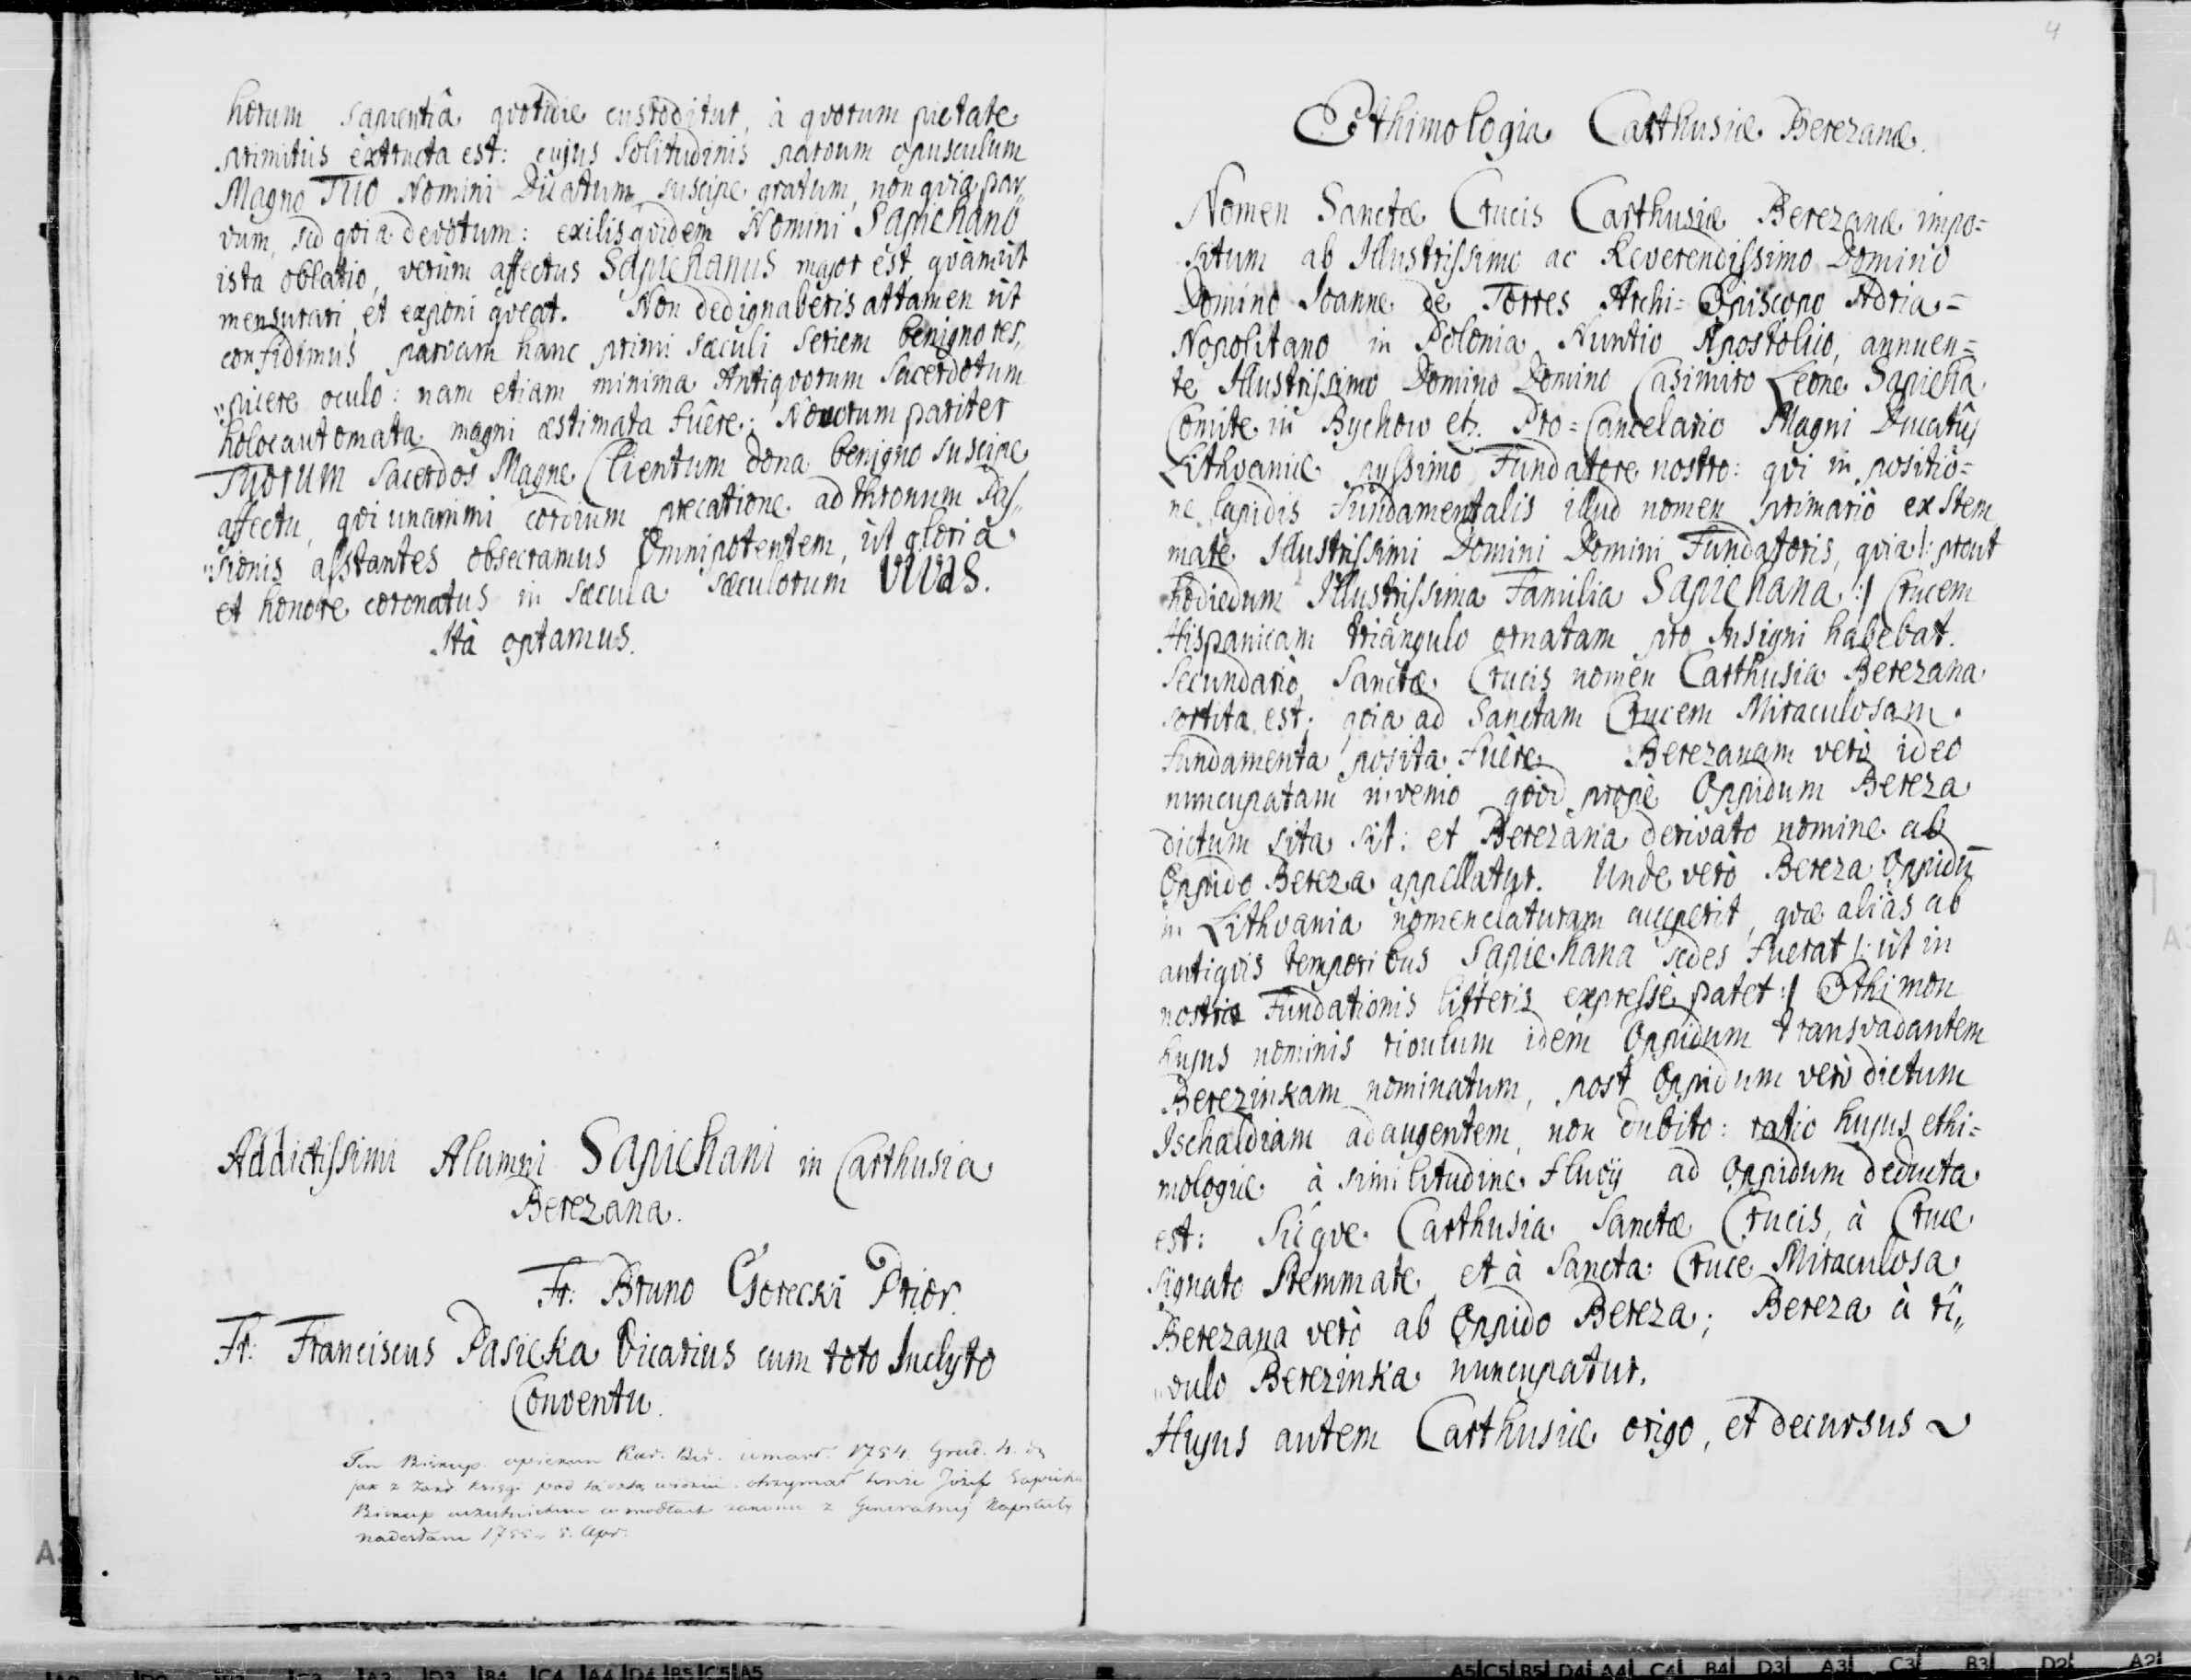 horum sapientiâ quotidie custoditur, à quorum pietate
primitùs èxtructa est: cujus Solitudinis parvum opusculum
Magno TUO Nomini Dicatum, suscipe gratum, non quia par„
vum, sed quia devotum: exilis quidem Nomini SAPIEHANO
ista oblatio, verùm affectus SAPIEHANUS major est, quàm ùt
mensurari, et exponi queat. Non dedignaberis attamen ùt
confidimus parvam hanc primi sæculi seriem benigno res,
„picere oculo: nam etiam minima Antiquorum Sacerdotum
holocautomata magni æstimata fuêre: Novorum pariter
TUORUM Sacerdos Magne Clientum dona benigno suscipe
affectu, qui unanimi cordium precatione ad thronum Pas„
„sionis asstantes obsecramus Omnipotentem, ùt gloriâ
et honore coronatus in sæcula sæculorum VIVAS.
Ità optamus.
Addictissimi Alumni SAPIEHANI in Carthusia
Berezana.
Fr: Bruno Gorecki Prior.
Fr: Franciscus Pasicka Vicarius cum toto Inclyto
Conventu.
Ten Biskup opiekun Kar. Ber. umarł 1754 Grud. 4.
jak z księgi pod otrzymał tenże Józef Sapieha
Biskup uczestnictwo w modłach zakonu z Generalnej Kapituły
nadesłane 1755. 5. Apr:
4
Ethimologia Carthusiæ Berezanæ.
Nomen Sanctæ Crucis Carthusiæ Berezanæ impo=
situm ab Illustrissimo ac Reverendissimo Domino
Domino Joanne de Torres Archi=Episcopo Adria=
Nopolitano in Polonia Nuntio Apostolico, annuen=
te Illustrissimo Domino Domino Casimiro Leone Sapieha
Comite in Bychow etz. Pro=Cancelario Magni Ducatûs
Lithvaniæ pyssimo Fundatore nostro: qui in positio=
ne lapidis Fundamentalis illud nomen primariò ex Stem
mate Illustrissimi Domini Domini Fundatoris, quia /: prout
hodiedum Illustrissima Familia SAPIEHANA :/ Crucem
Hispanicam triangulo ornatam pro Insigni habebat.
Secundariò, Sanctæ Crucis nomen Carthusia Berezana
sortita est; quia ad Sanctam Crucem Miraculosam
fundamenta posita fuêre. Berezanam verò ideo
nuncupatam invenio quod propè Oppidum Bereza
dictum sita sit: et Berezana derivato nomine ab
Oppido Bereza appellatur. Unde verò Bereza Oppidū
in Lithvania nomenclaturam acceperit, quæ aliàs ab
antiquis temporibus Sapiehana sedes fuerat /: ùt in
nostræ Fundationis litteris expressè patet :/ Ethimon
hujus nominis rivulum idem Oppidum transvadantem
Berezinkam nominatum, post Oppidum verò dictum
Jschaldiam adaugentem, non dubito: ratio hujus ethi=
mologiæ à similitudine fluvij ad Oppidum deducta
est: Sicque Carthusia Sanctæ Crucis, à Cruce
signato Stemmate, et à Sancta Cruce Miraculosa,
Berezana verò ab Oppido Bereza; Bereza à ri„
„vulo Berezinka nuncupatur.
Hujus autem Carthusiæ origo, et decursus